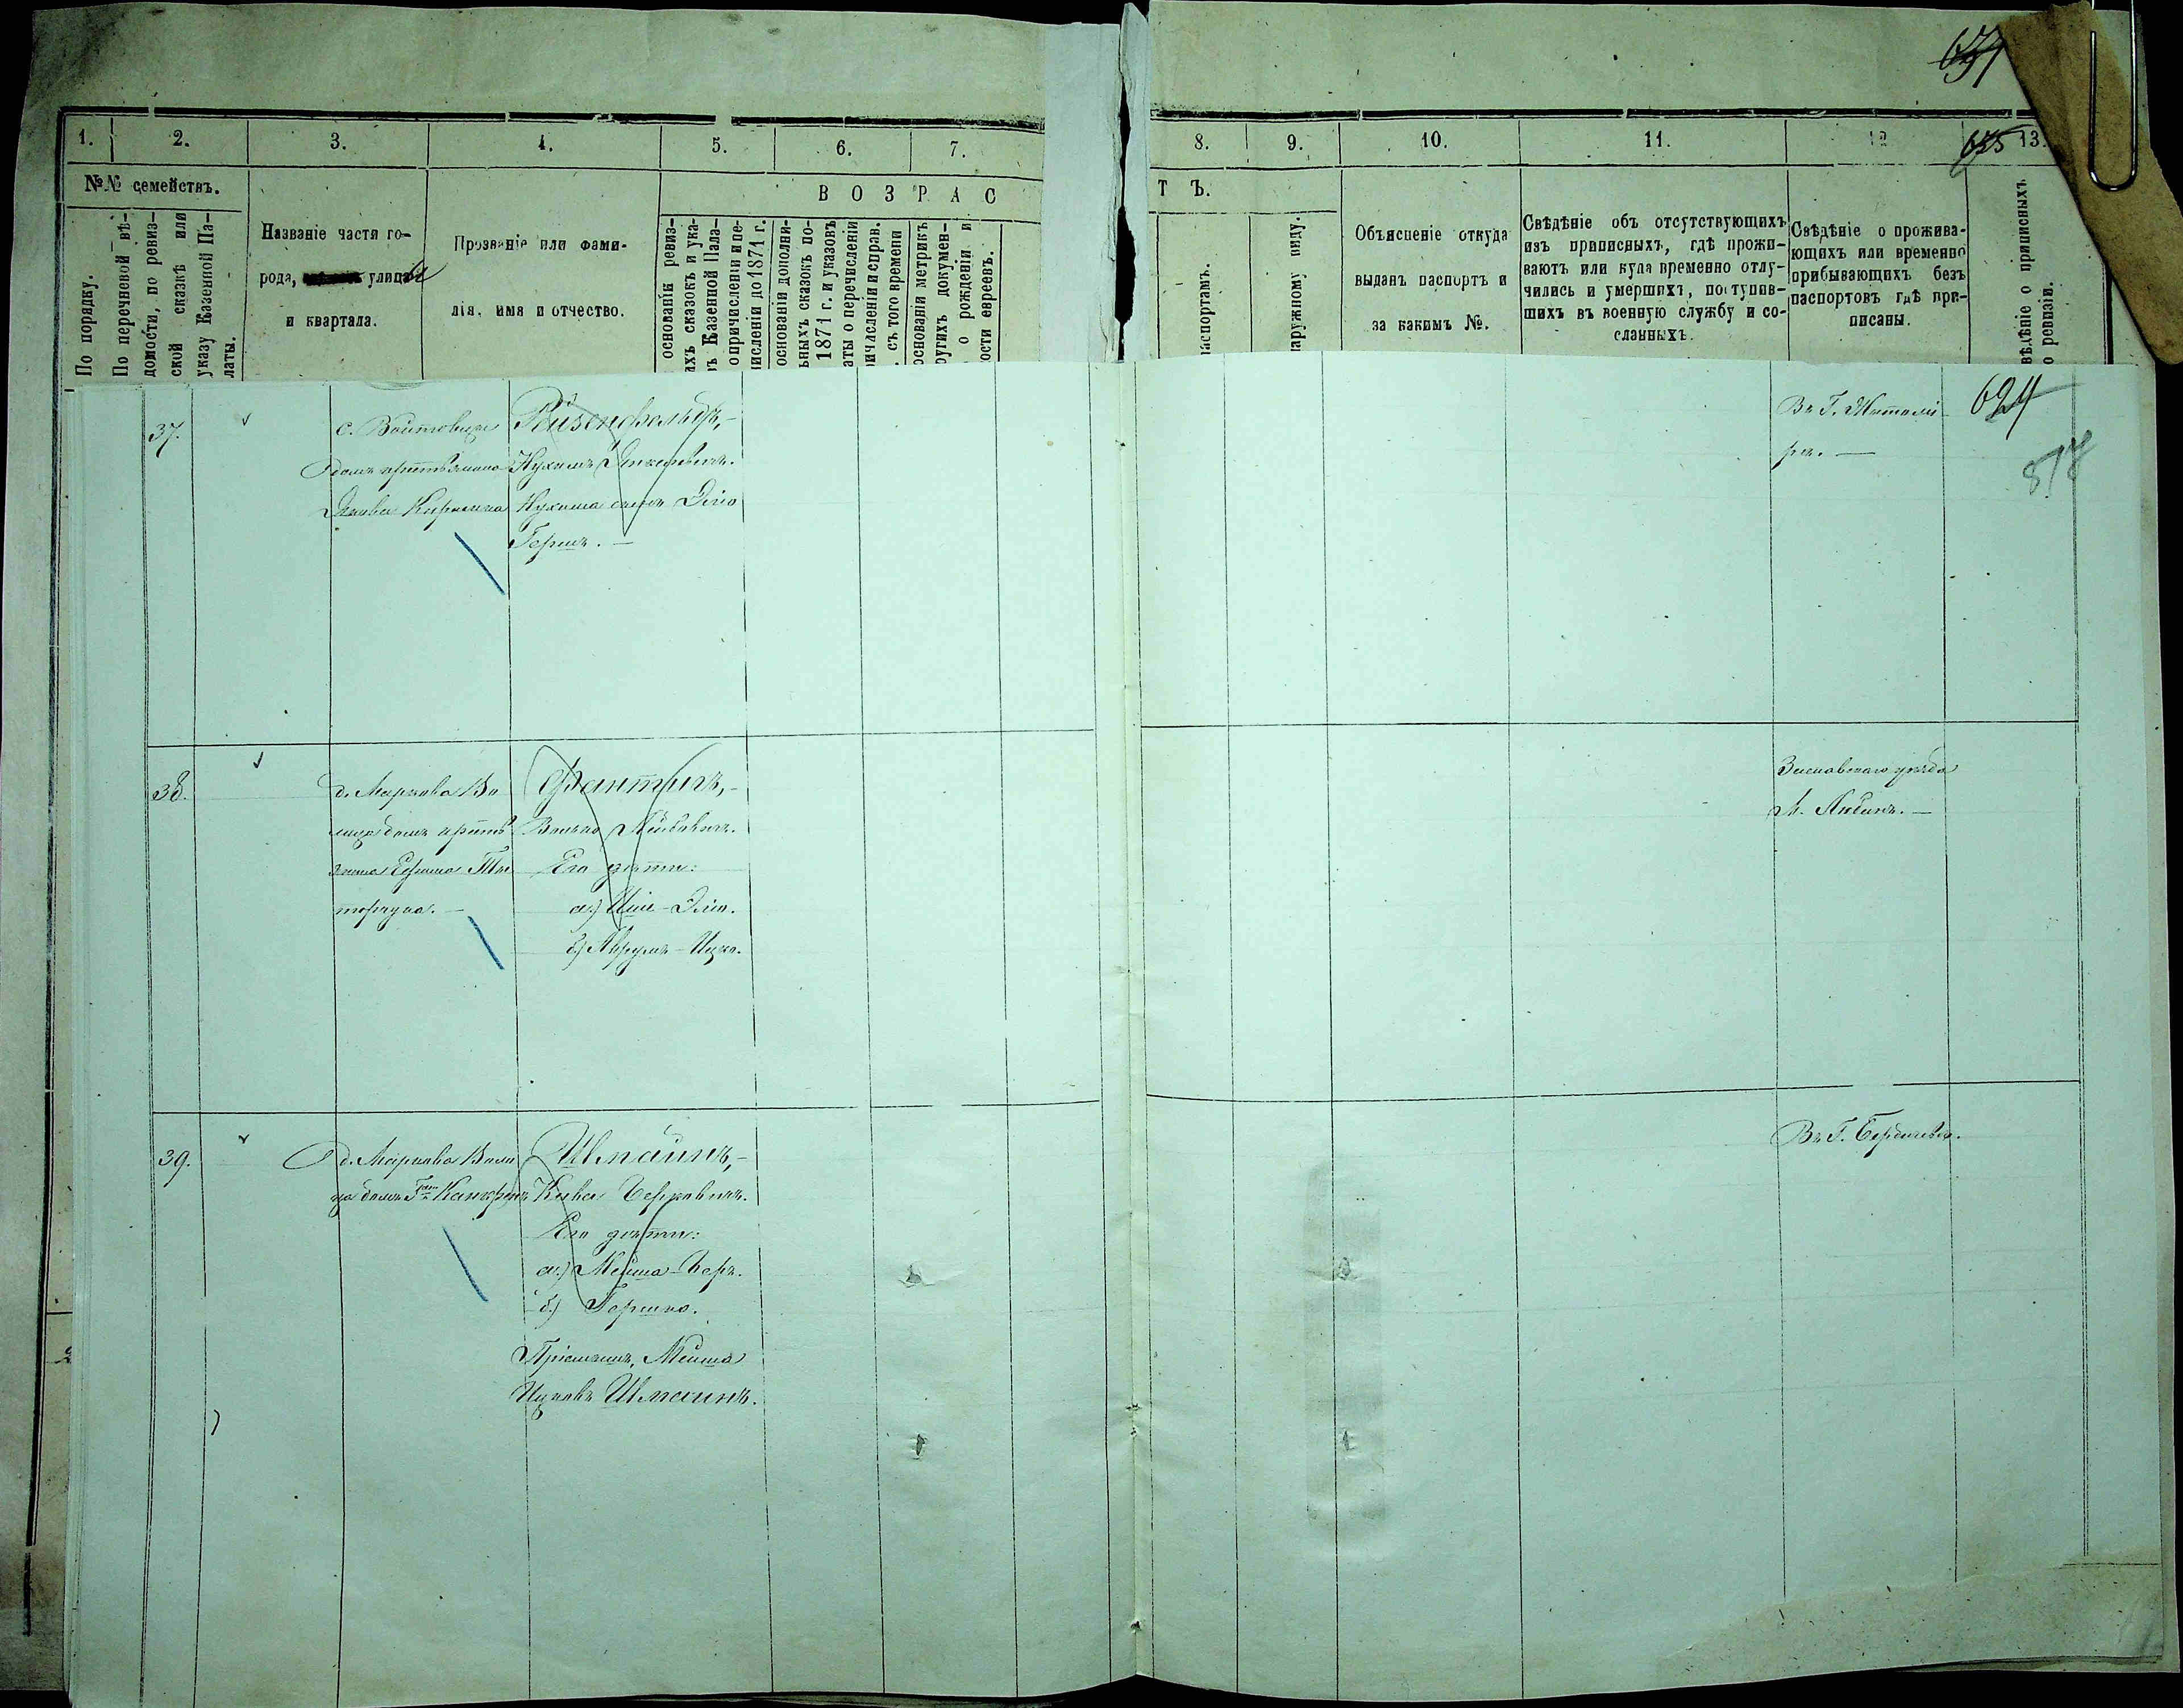 1.
2.
3.
4.
5.
6.
7.
8.
9.
10.
11.
12
13.
655
№№ семействъ.
По порядку.
По перечневой вѣ-
домости, по ревиз-
ской сказкѣ или
указу Казенной Па-
латы.
Названіе части го-
рода, улицы
и квартала.
Прозваніе или фами-
лія, имя и отчество.
ВОЗРАС
ТЪ.
основаніи ревиз-
ихъ сказокъ и ука-
въ Казенной Пала-
о причисленіи и пе-
исленіи до 1871 г.
основаніи дополни-
ьныхъ сказокъ по-
1871 г. и указовъ
аты о перечисленіи
ричисленіи и справ.
съ того времени
основаніи метрикъ
ругихъ докумен-
о рожденіи и
ости евреевъ.
аспортамъ.
аружному виду.
Объясненіе откуда
выданъ паспортъ и
за какимъ №.
Свѣдѣніе объ отсутствующихъ
изъ приписныхъ, гдѣ прожи-
ваютъ или куда временно отлу-
чились и умершихъ, поступив-
шихъ въ военную службу и со-
сланныхъ.
Свѣдѣніе о прожива-
ющихъ или временно
прибывающихъ безъ
паспортовъ гдѣ при-
писаны.
вѣдѣніе о приписныхъ
о ревизіи.
37.
с. Войтовцы
домъ крестьянина
Якова Кирилина
Ройзенфельдъ,-
Нухимъ Янкелевичъ.
Нухима сынъ Эліо
Гершъ. —
Въ Г. Житомі-
рѣ. —
624
878
38.
д. Маркова Во
лица домъ крестья
нина Ефима
Фантихъ,-
Волько Лейбовичъ.
Его дѣти:
а) Шіе-Эліо.
б) Аврумъ-Ицко.
Заславскаго уѣзда
М. Лабунь. —
39.
д. Маркова Воли
ца домъ
Шпаинъ,-
Кива Берковичъ.
Его дѣти:
а) Мейша-Беръ.
б) Гершко.
Пріемышъ, Мейша
Ицковъ Шпаинъ.
Въ Г. Бердичевѣ.